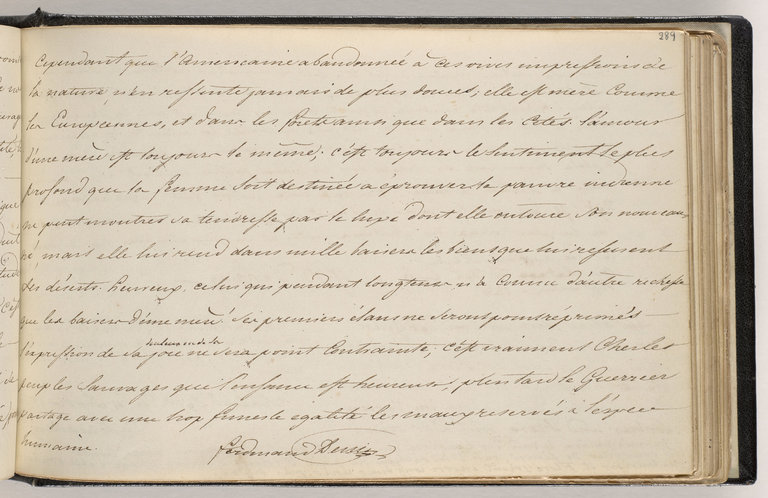 289
Cependant que l'Americaine abandonnée à ces vives impressions de
la nature n'en ressente jamais de plus douces, elle est mère comme
les Européennes, et dans les forêts ainsi que dans les Cités l'amour
d'une mère est toujours le même; c'est toujours le sentiment le plus
profond que la femme soit destinée a éprouver la pauvre indienne
ne peut montrer sa tendresse par le luxe dont elle entoure son nouveau
né mais elle lui rend dans mille baisers les biens que lui refusent
les déserts. heureux celui qui pendant longtems n'a connu d'autre richesse
que les baisers d'une mère! ses premiers élans ne seront point réprimés
douleur ou de la
l'expression de sa joie ne sera point contrainte; c'est vraiment Chez les
peuples Sauvages que l'enfance est heureuse, plus tard le Guerrier
partage avec une trop funeste égalité les maux réservés à l'espece
humaine.
ferdinand Denis